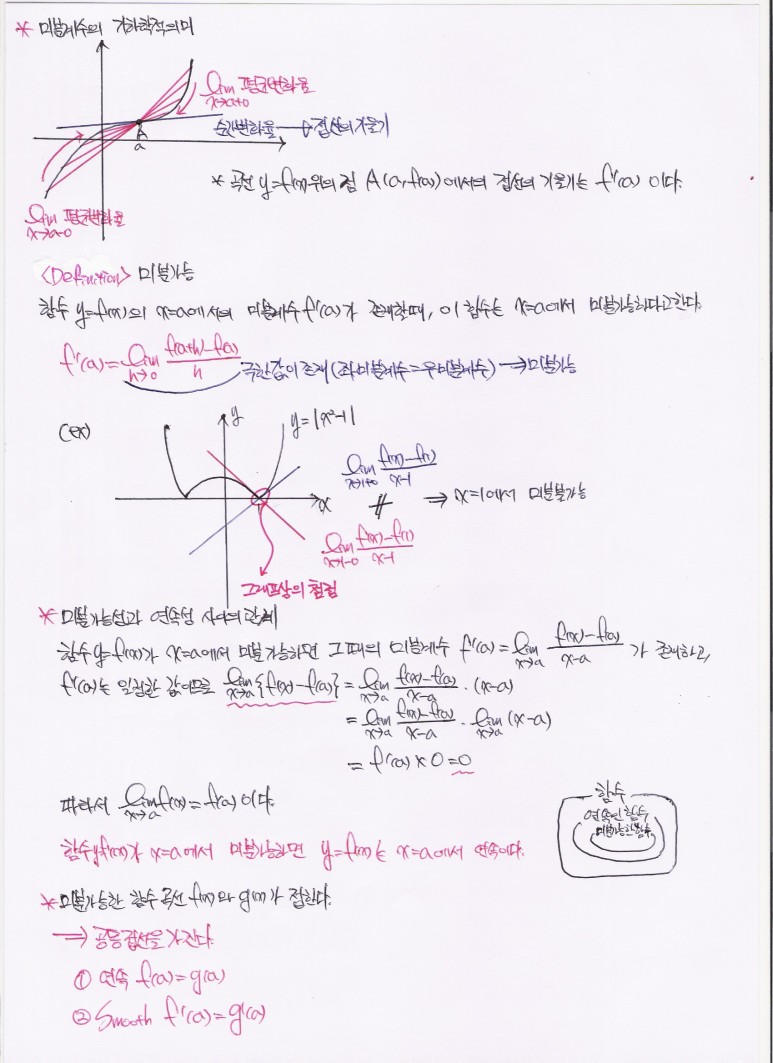 * 미분계수의 기하학적의미
lim x→a+0 평균변화율
순간변화율 → 접선의 기울기
A
a
* 곡선 y=f(x)위의 점 A(a, f(a))에서의 접선의 기울기는 f'(a) 이다.
lim x→a-0 평균변화율
<Definition> 미분가능
함수 y=f(x)의 x=a에서의 미분계수 f'(a)가 존재할때, 이 함수는 x=a에서 미분가능하다고한다.
f'(a)=lim h→0 (f(a+h)-f(a))/h 극한값이 존재(좌미분계수=우미분계수) → 미분가능
(ex) y y=|x²-1|
lim x→1+0 (f(x)-f(1))/(x-1)
x ≠ ⇒ x=1에서 미분불가능
lim x→1-0 (f(x)-f(1))/(x-1)
그래프상의 첨점
* 미분가능성과 연속성 사이의 관계
함수 y=f(x)가 x=a에서 미분가능하면 그때의 미분계수 f'(a)=lim x→a (f(x)-f(a))/(x-a) 가 존재하고,
f'(a)는 일정한 값이므로 lim x→a {f(x)-f(a)} = lim x→a (f(x)-f(a))/(x-a) · (x-a)
= lim x→a (f(x)-f(a))/(x-a) · lim x→a (x-a)
= f'(a)×0=0
따라서 lim x→a f(x)=f(a)이다.
함수
연속인 함수
미분가능한 함수
함수 y=f(x)가 x=a에서 미분가능하면 y=f(x)는 x=a에서 연속이다.
* 미분가능한 함수 곡선 f(x)와 g(x)가 접한다.
⇒ 공통접선을 가진다.
① 연속 f(a)=g(a)
② Smooth f'(a)=g'(a)